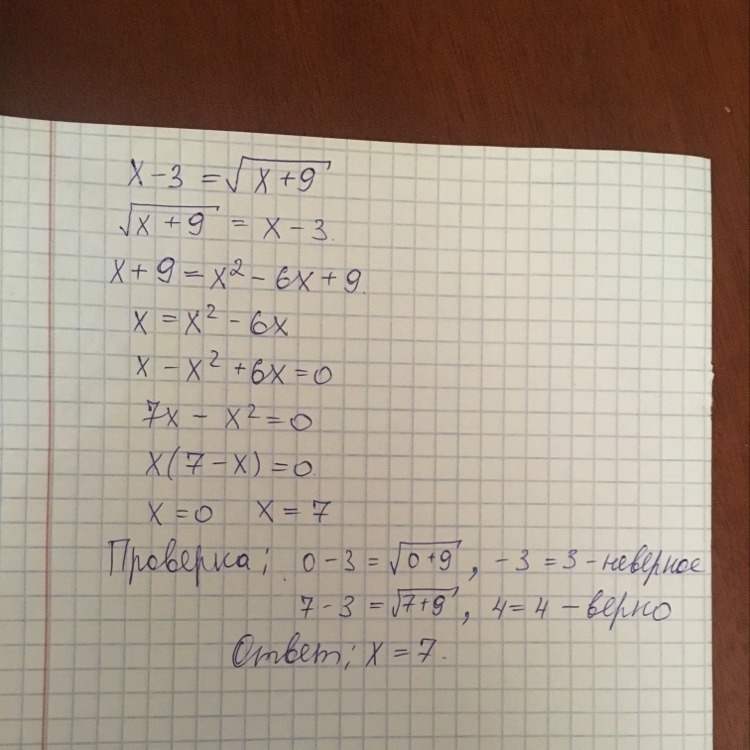 x - 3 = √(x + 9)
√(x + 9) = x - 3.
x + 9 = x² - 6x + 9.
x = x² - 6x
x - x² + 6x = 0
7x - x² = 0
x(7 - x) = 0.
x = 0 x = 7
Проверка; 0 - 3 = √(0 + 9), -3 = 3 - неверное
7 - 3 = √(7 + 9), 4 = 4 - верно
Ответ; x = 7.